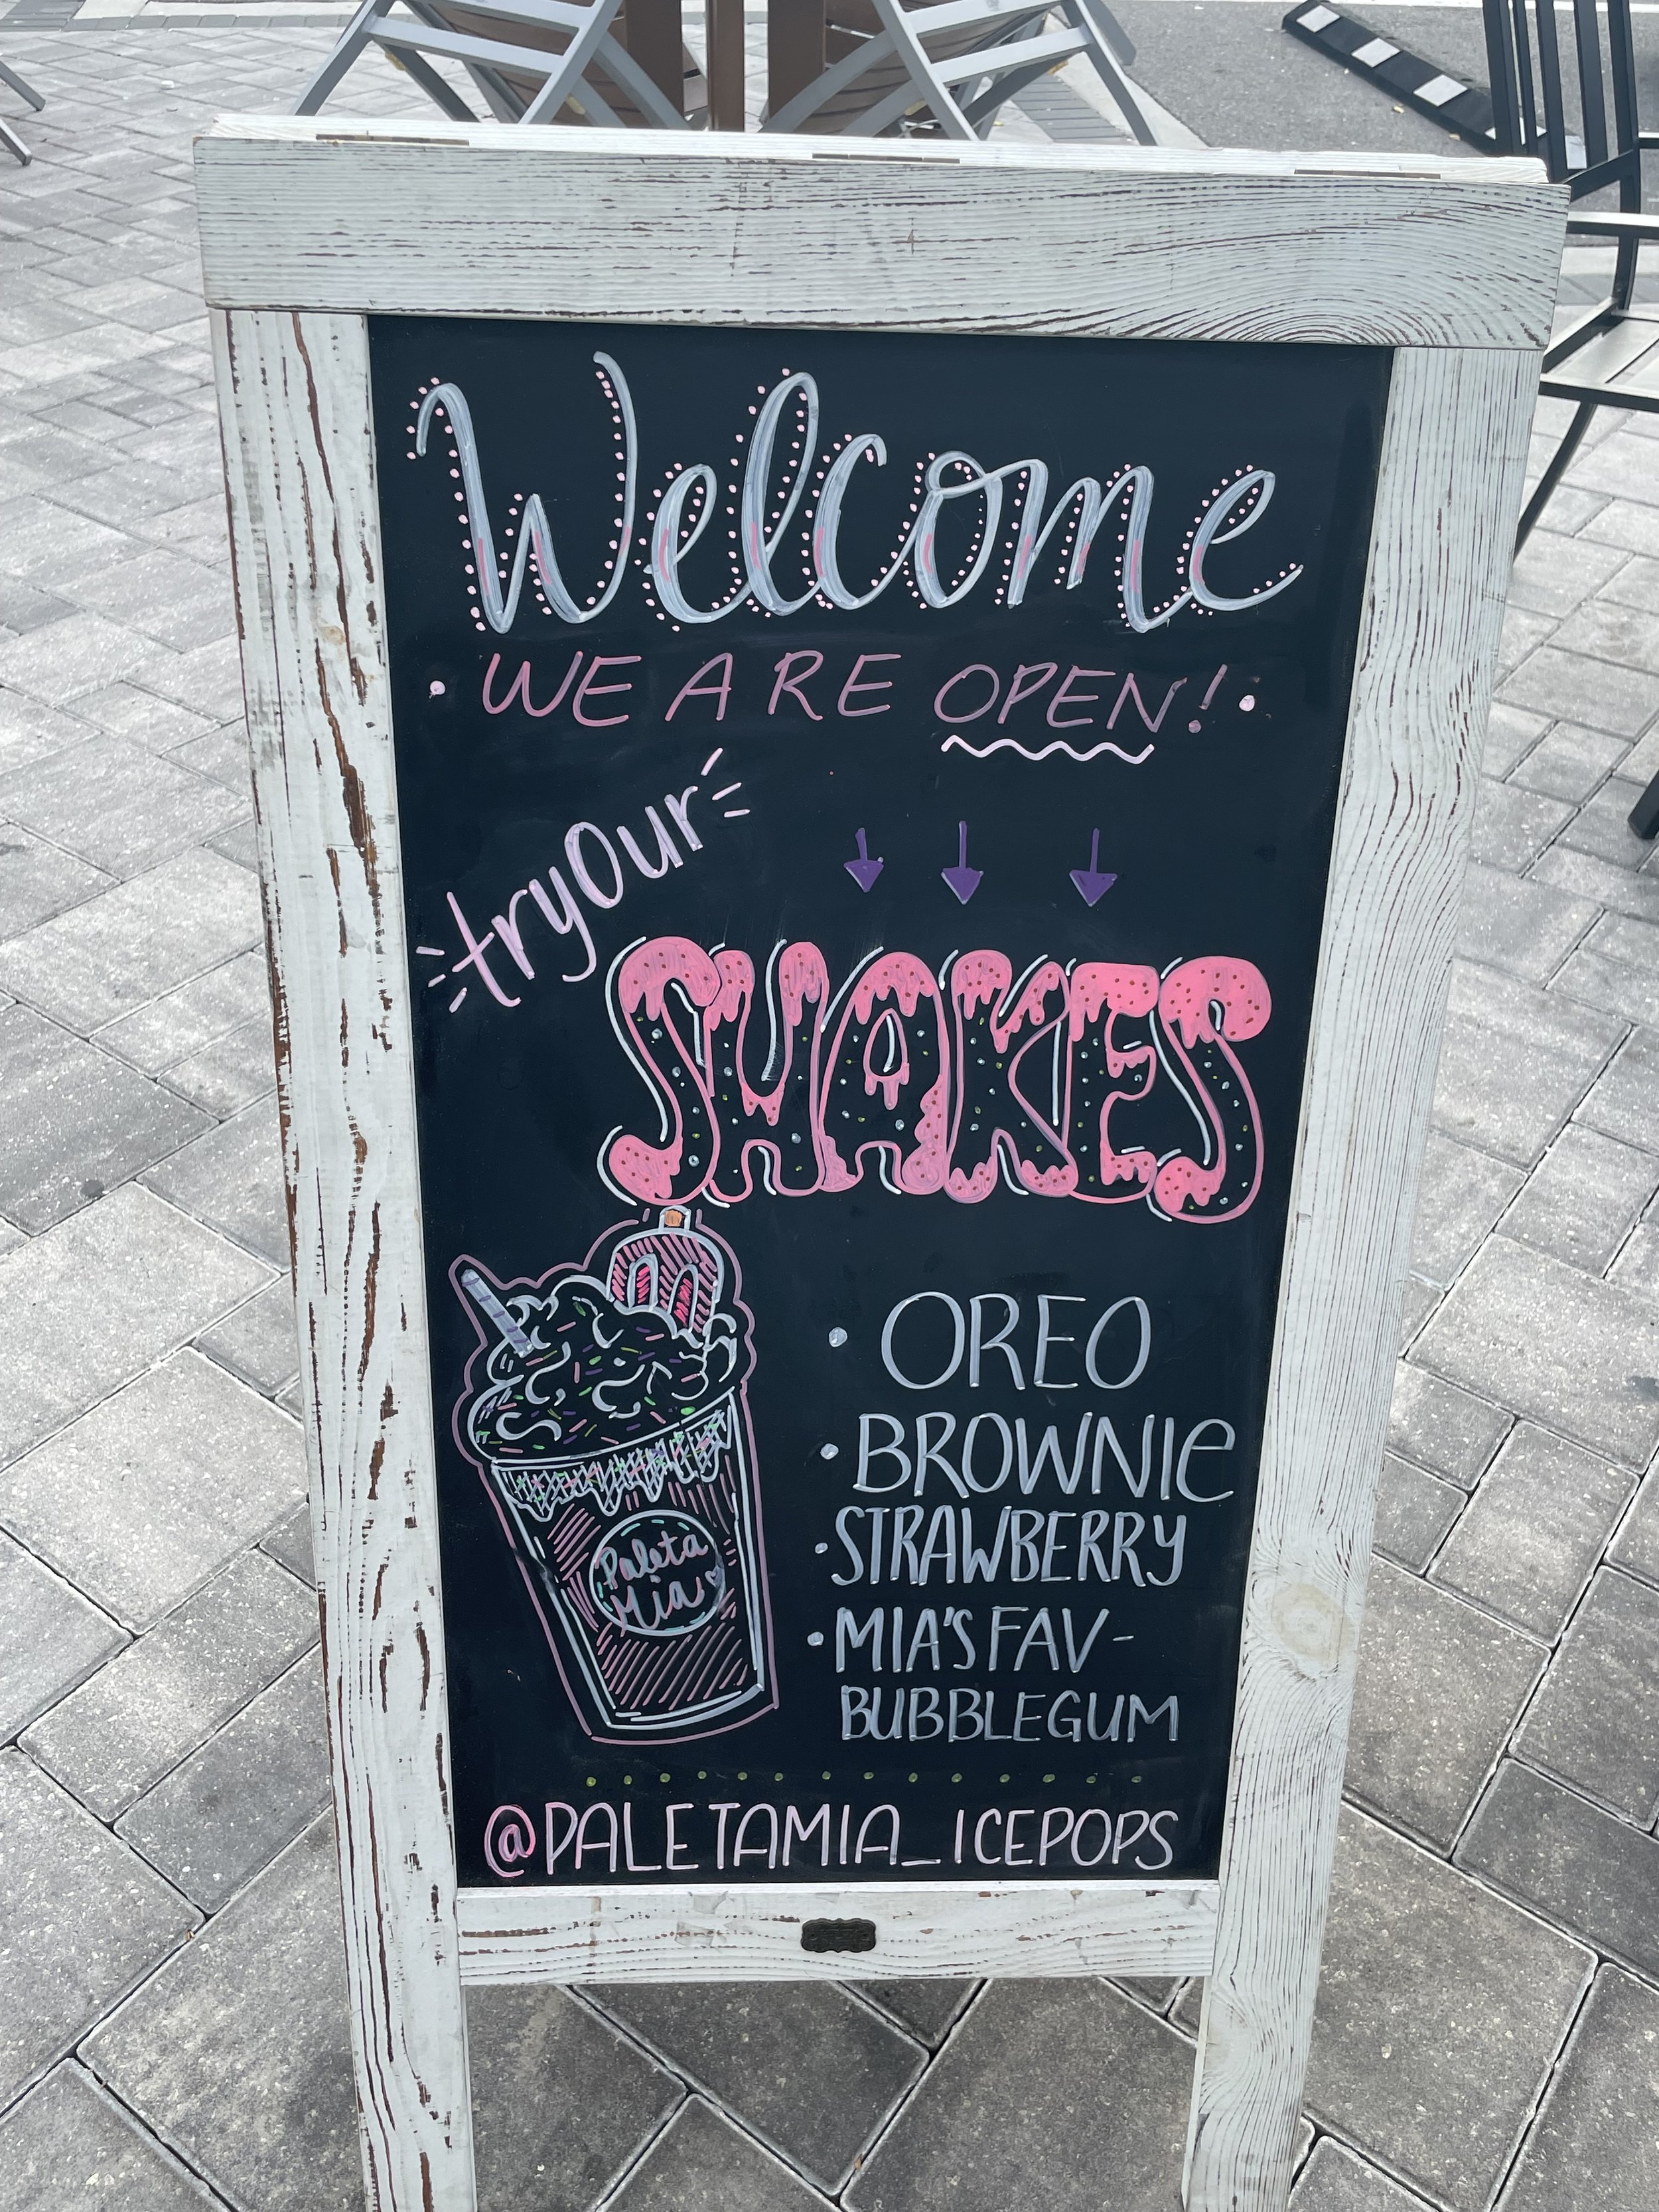 Welcome
WE ARE OPEN!
try Our
SHAKES
• OREO
• BROWNIE
• STRAWBERRY
• MIA'S FAV-
BUBBLEGUM
Paleta
Mia
@PALETAMIA_ICEPOPS